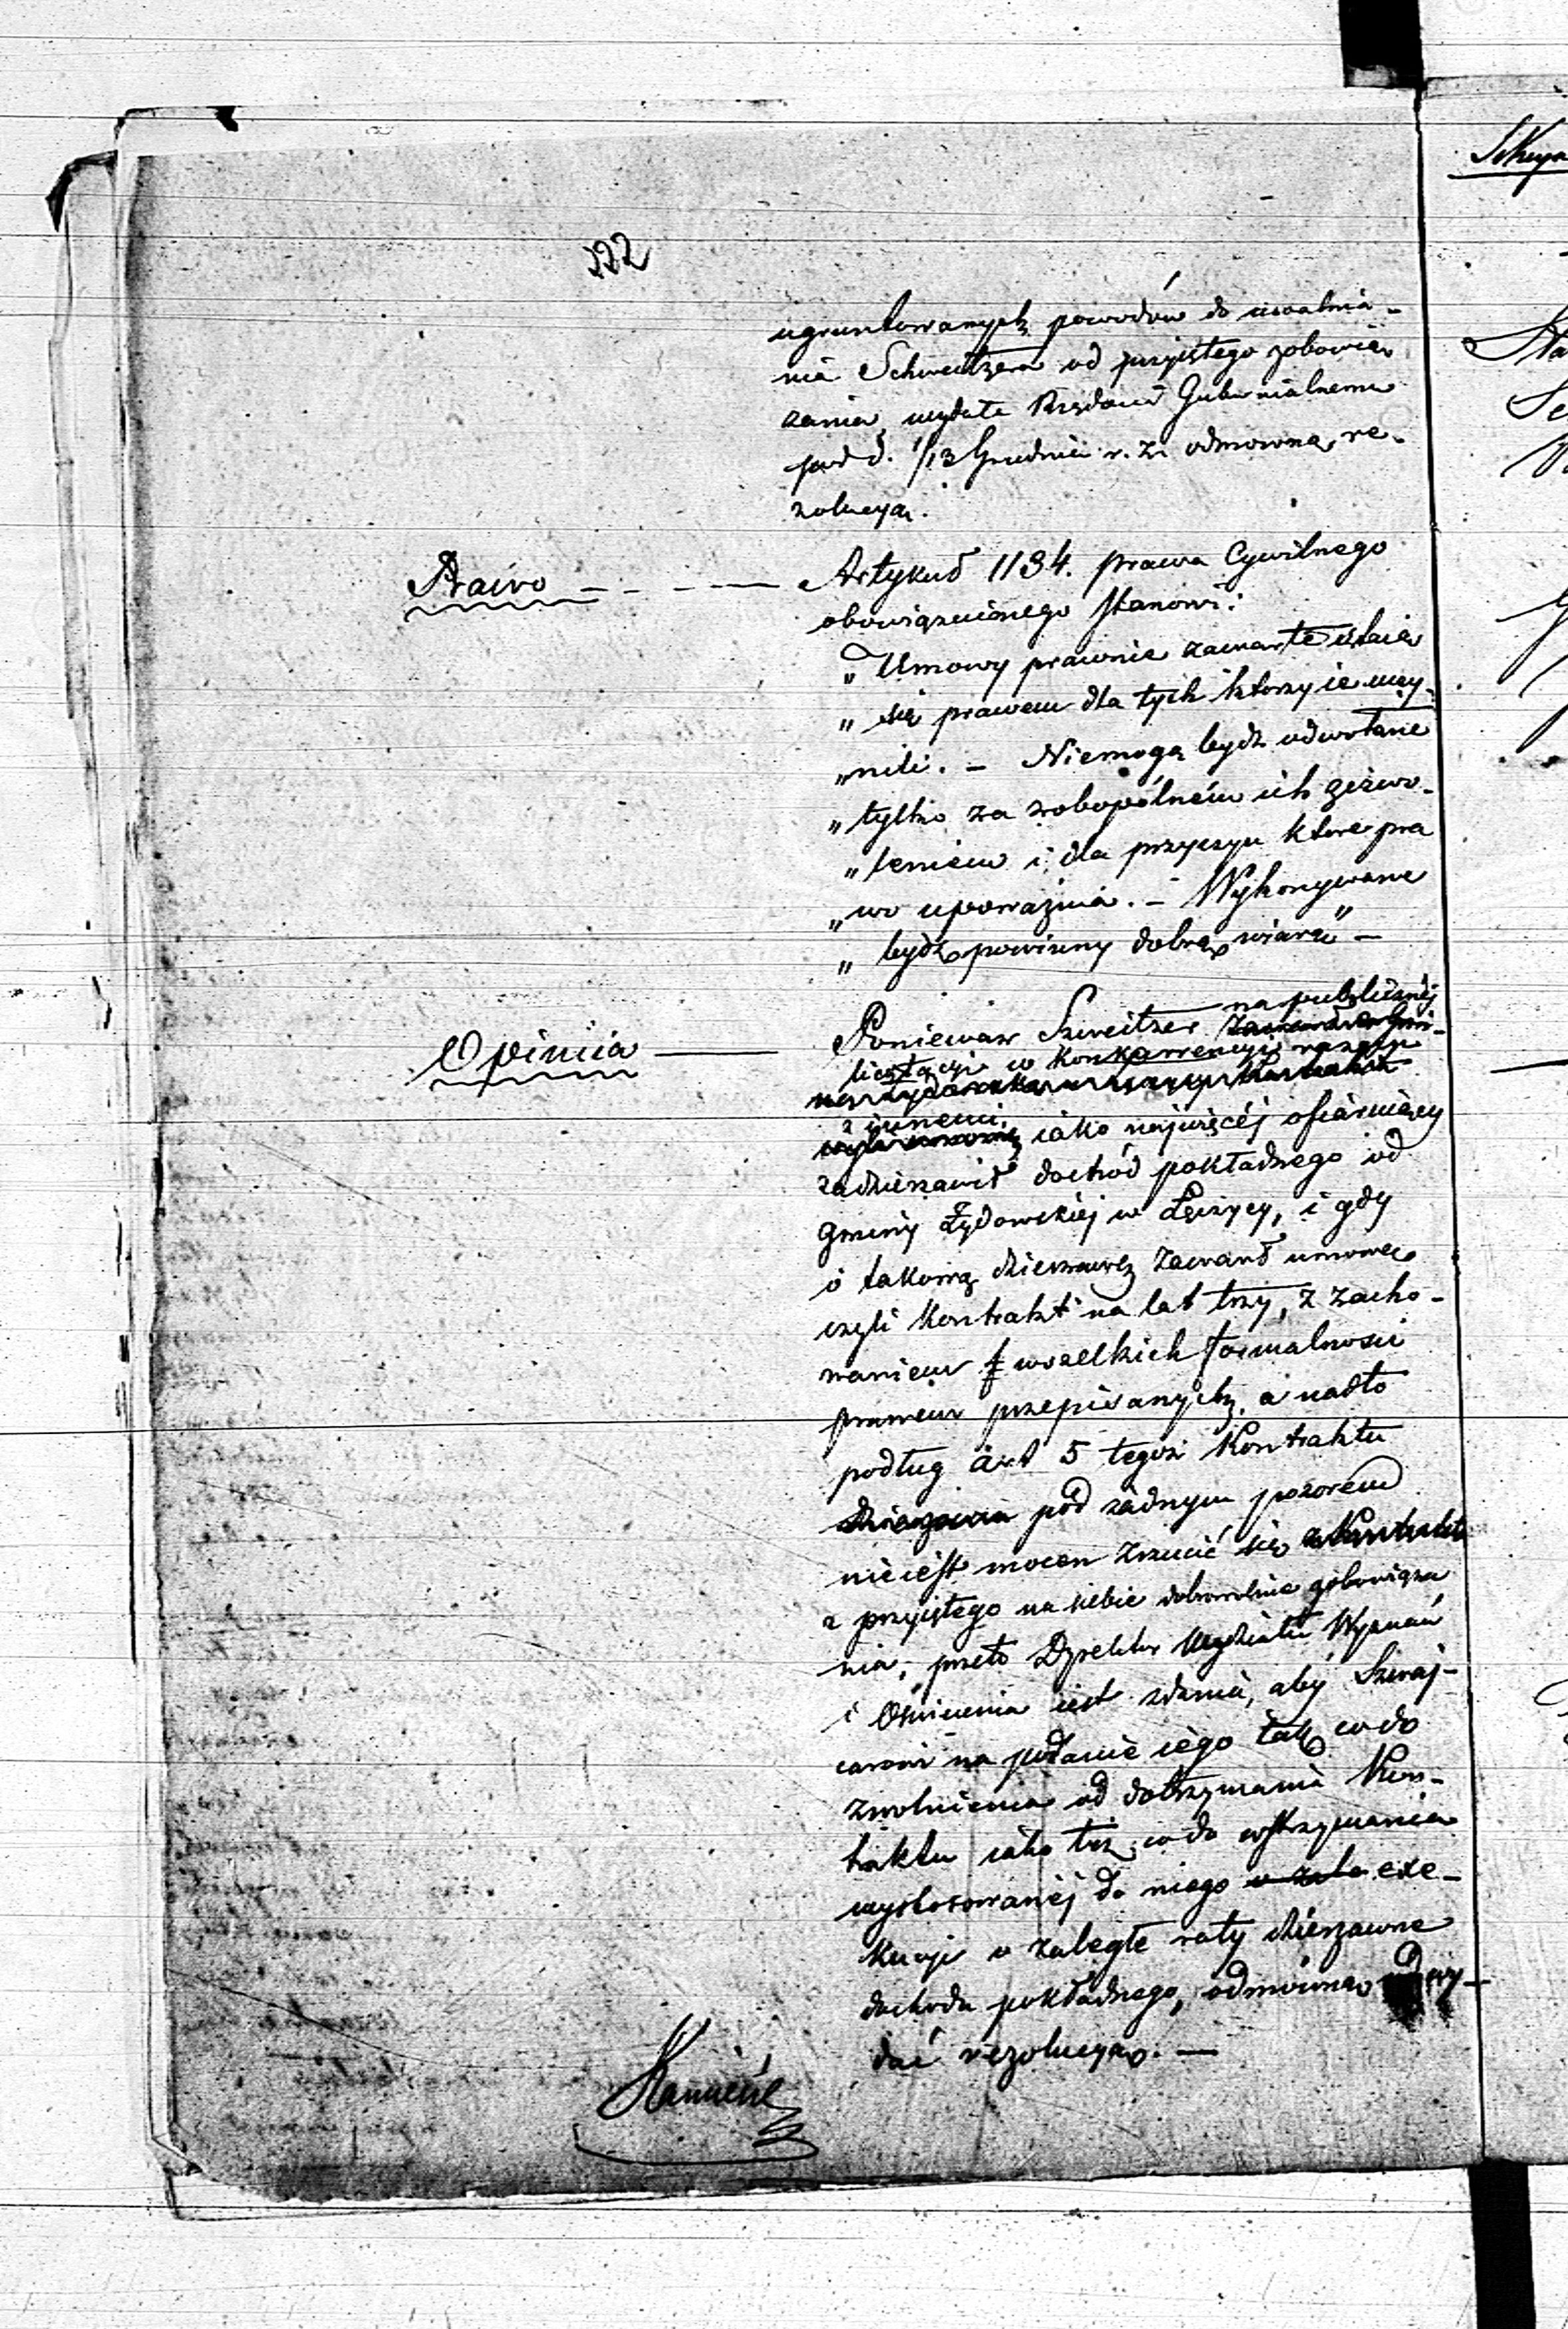 222
ugruntowanych powodów do uwalnia-
nia Schweitzera od przyiętego zobowią
zania, wydała Rządowi Gubernialnemu
pod d. 1/13 Grudnia r. z. odmowną re-
zolucyą.
Prawo - - - — Artykuł 1134. prawa Cywilnego
obowiązuiącego stanowi:
„Umowy prawnie zawarte staią
„ się prawem dla tych którzy ie uczy-
„nili. – Niemogą bydź odwołane
„tylko za wobopólném ich zezwo-
„leniem i dla przyczyn które pra
„wo upoważnia. – Wykonywane
„ bydź powinny dobrą wiarą" –
Opinia — Ponieważ Szweitzer na publicznéj
licytacyi w konkurrencyi razem
z innemi, iako najwięcéj ofiaruiący
zadzierżawił dochód pokładnego od
gminy Żydowskiéj w Łęczycy, i gdy
o takową dzierżawę zawarł umowę
czyli Kontrakt na lat trzy, z zacho-
waniem wszelkich formalności
prawem przepisanych, a nadto
podług art 5 tegoż Kontraktu
pod żadnym pozorem
nie iest mocen zrzucić się
z przyiętego na siebie dobrowolnie zobowiąza
nia, przeto Dyrektor Wydziału Wyznań
i Oświecenia iest zdania, aby Szwaj-
carowi na podanie iego tak co do
zwolnienia od dotrzymania Kon-
traktu iako też co do wstrzymania
wystosowanéj do niego exe-
kucyi o zaległe raty dzierżawne
dochodu pokładnego, odmówną wy-
dać rezolucyą. —